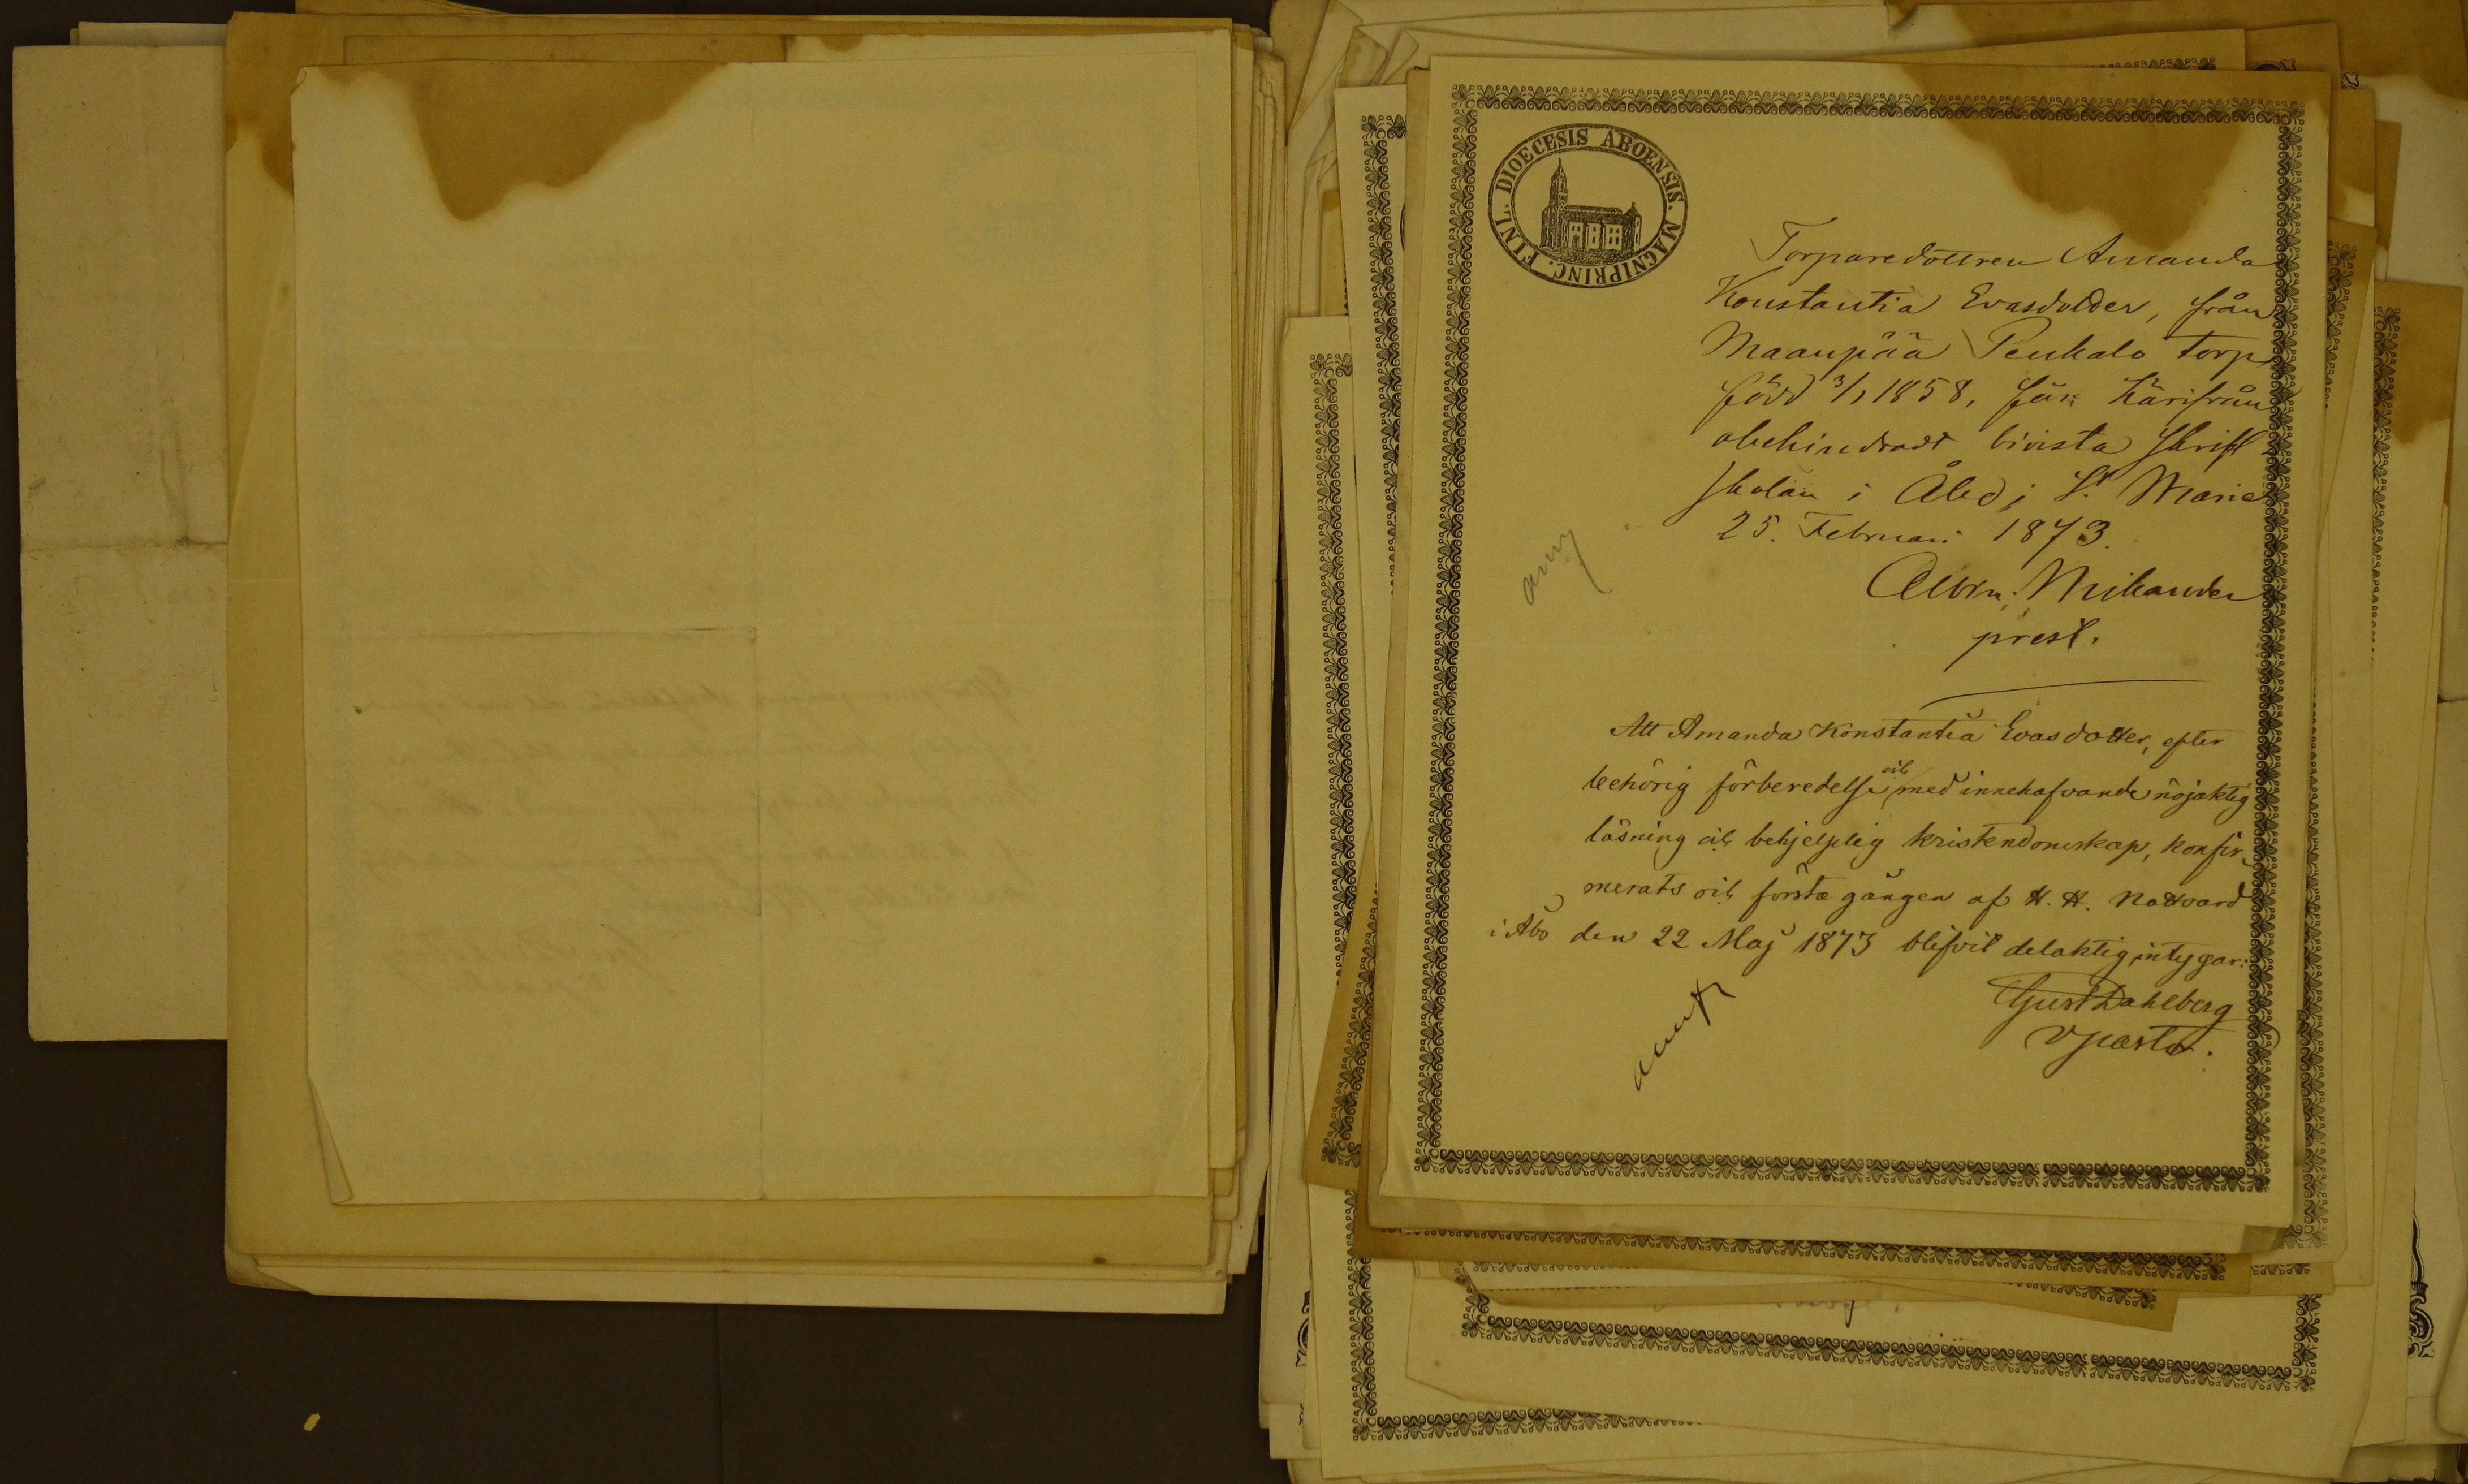 FINL. DIOECESIS ABOENSIS. MAGNIPRINC.
Torparedottren Amanda
Konstantia Evasdotter, från
Maanpää Penkalo torp,
född 3/1 1858, får härifrån
obehindradt bivista skrift
skolan i Åbo; St Marie
25. Februari 1873.
Albin. Mikander
prest.
Att Amanda Konstantia Evasdotter, efter
behörig förberedelse och med innehafvande nöjaktig
läsning och behjelplig kristendomskap, konfir
merats och första gången af H. H. Nattvard
i Åbo den 22 Maj 1873 blifvit delaktig, intygar:
Gust Dahlberg
v pastor.